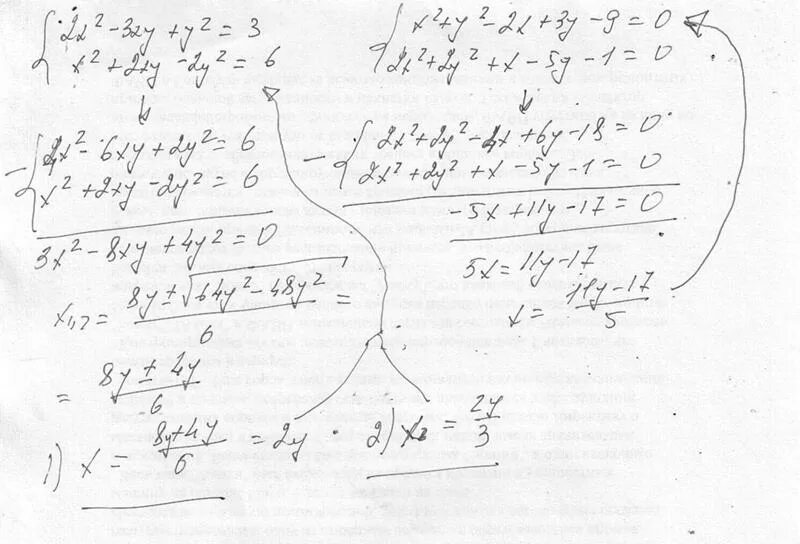 2x² - 3xy + y² = 3
x² + 2xy - 2y² = 6
2x² - 6xy + 2y² = 6
x² + 2xy - 2y² = 6
3x² - 8xy + 4y² = 0
x₁,₂ = (8y ± √(64y² - 48y²))/6 =
= (8y ± 4y)/6
1) x = (8y + 4y)/6 = 2y
2) x₂ = 2y/3
x² + y² - 2x + 3y - 9 = 0
2x² + 2y² + x - 5y - 1 = 0
2x² + 2y² - 4x + 6y - 18 = 0
2x² + 2y² + x - 5y - 1 = 0
-5x + 11y - 17 = 0
5x = 11y - 17
x = (11y - 17)/5